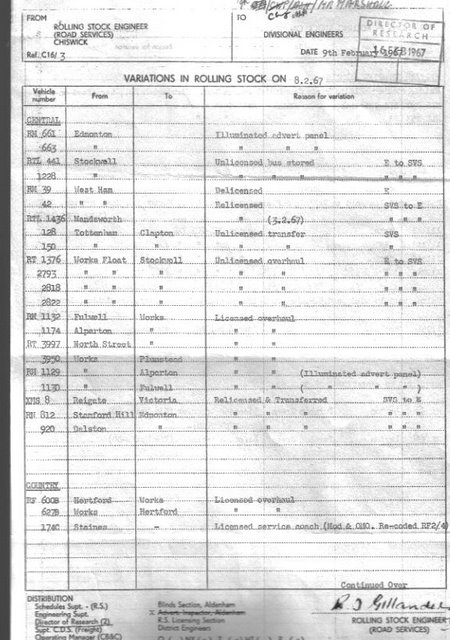 MR MARSHALL
FROM
ROLLING STOCK ENGINEER
(ROAD SERVICES)
CHISWICK
Ref. C16/ 3
TO
DIVISIONAL ENGINEERS
DATE 9th February 1967
DIRECTOR OF
RESEARCH
16 FEB 1967
VARIATIONS IN ROLLING STOCK ON 8.2.67
Vehicle number From To Reason for variation
CENTRAL
RM 661 Edmonton Illuminated advert panel
663 " " " "
RTL 441 Stockwell Unlicensed bus stored E to SVS
1228 " " " " " " "
RM 39 West Ham Delicensed E
42 " " Relicensed SVS to E
RTL 1436 Wandsworth " (3.2.67) " " "
128 Tottenham Clapton Unlicensed transfer SVS
150 " " " " "
RT 1376 Works Float Stockwell Unlicensed overhaul E to SVS
2793 " " " " " " " "
2818 " " " " " " " "
2822 " " " " " " " "
RM 1132 Fulwell Works Licensed overhaul
1174 Alperton " " "
RT 3997 North Street " " "
3950 Works Plumstead " "
RM 1129 " Alperton " " (Illuminated advert panel)
1130 " Fulwell " " ( " " " )
XMS 8 Reigate Victoria Relicensed & Transferred SVS to E
RM 812 Stamford Hill Edmonton " " " " " "
920 Dalston " " " " " " "
COUNTRY
RF 600B Hertford Works Licensed overhaul
627B Works Hertford " "
174C Staines - Licensed service coach (Mod & OMO. Re-coded RF2/4)
Continued Over
DISTRIBUTION
Schedules Supt. - (R.S.)
Engineering Supt.
Director of Research (2)
Supt. C.D.S. (Freight)
Operating Manager (CB&C)
Blinds Section, Aldenham
X Advert. Inspector, Aldenham
R.S. Licensing Section
District Engineers
R J Gillander
ROLLING STOCK ENGINEER
(ROAD SERVICES)